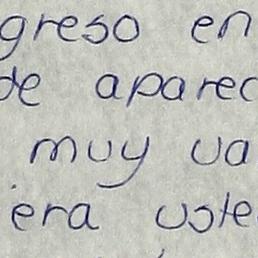 greso en
de aparec
muy va
era uste